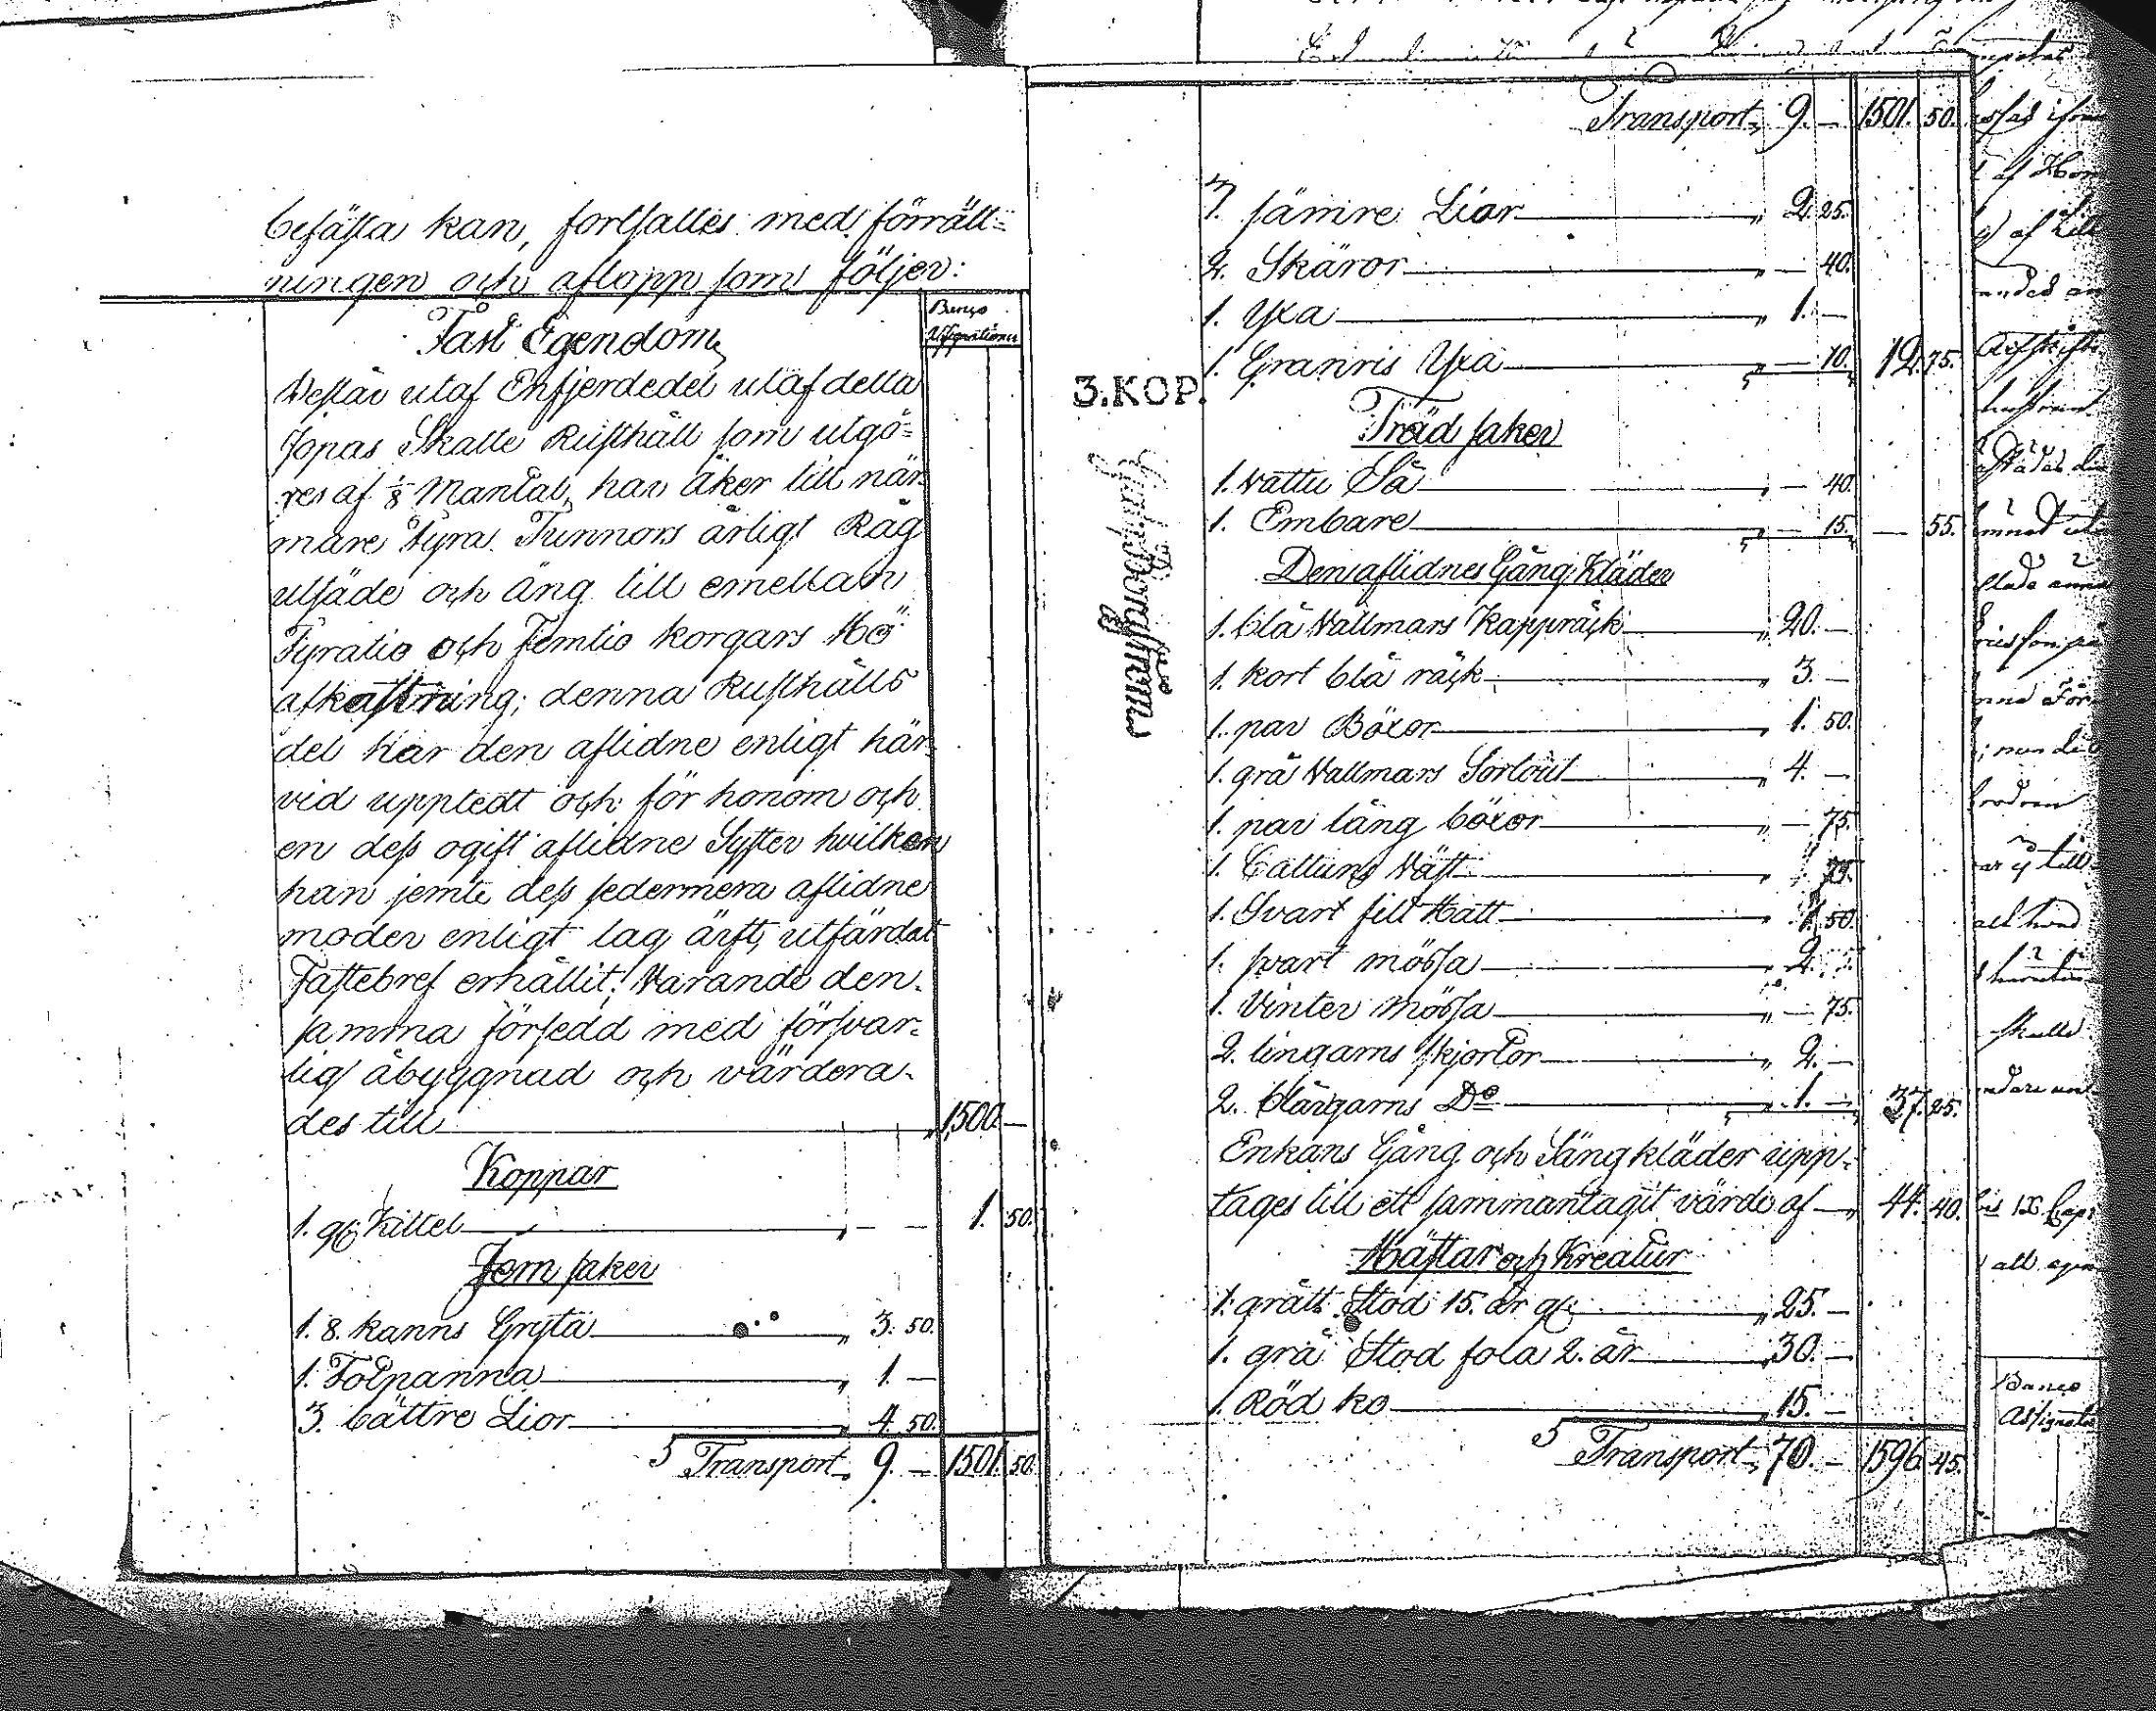 befästa kan, fortsattes med förrätt=
ningen och aflopp som följer:
Banco
Assignationer
Fast Egendom
Består utaf Enfjerdedel utaf detta
Jopas Skatte Rusthåll som utgö=
res af 1/8 Mantal, har åker till när
mare Fyra Tunnors årligt Råg
utsäde och äng till emellan
Fyratio och Femtio korgars Hö
afkastning; denna Rusthålls
del har den aflidne enligt här
vid uppteedt och för honom och
en dess ogift aflidne Syster hvilken
han jemte dess sedermera aflidne
moder enligt lag ärft, utfärdat
Fastebref erhållit; Varande den-
samma försedd med försvar-
lig åbyggnad och värdera-
des till " 1,500. —
Koppar
1. gl. Kittel " — — 1. 50.
Jern saker
1. 8. kanns Gryta " 3. 50.
1. Tolpanna " 1. —
3. bättre Lior " 4. 50.
Transport 9. — 1501. 50.
Transport 9. — 1501. 50.
7. sämre Lior " 2. 25.
2. Skäror " — 40.
1. Yxa " 1. —
1. Granris Yxa " — 10. 12. 75.
3.KOP.
Träd saker
1. Vattu Så " — 40.
1. Embare " — 15. — 55.
Den aflidnes Gång Kläder
1. blå Vallmars Kappråck " 20. —
1. kort blå råck " 3. —
1. par Böxor " 1. 50.
1. grå Vallmars Sortout " 4. —
1. par lång böxor " — 75.
1. Cattuns Väst " — 75.
1. Svart filt Hatt " 1. 50.
1. svart mössa " 2. —
1. Vinter mössa " — 75.
2. lingarns skjortor " 2. —
2. blårgarns Do " 1. — 37. 25.
Enkans Gång och Sängkläder upp-
tages till ett sammantagit värde af " 44. 40.
Hästar och Kreatur
1. grått Stod 15. år gl. " 25. —
1. grå Stod fola 2. år " 30. —
1. Röd ko " 15. —
Transport 70. — 1596. 45.
Banco